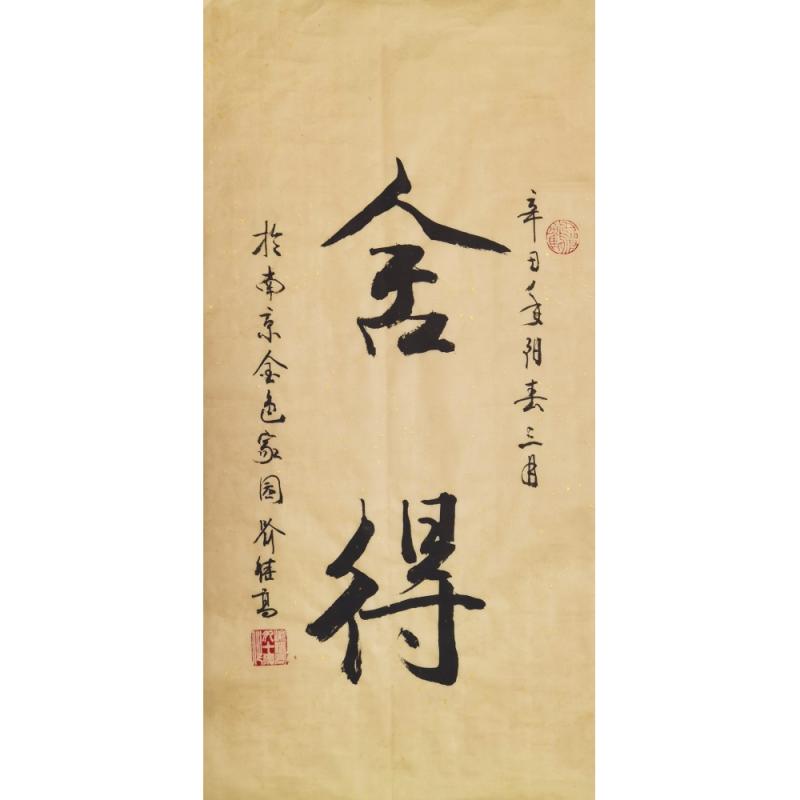 辛丑年阳春三月
舍得
於南京金色家园